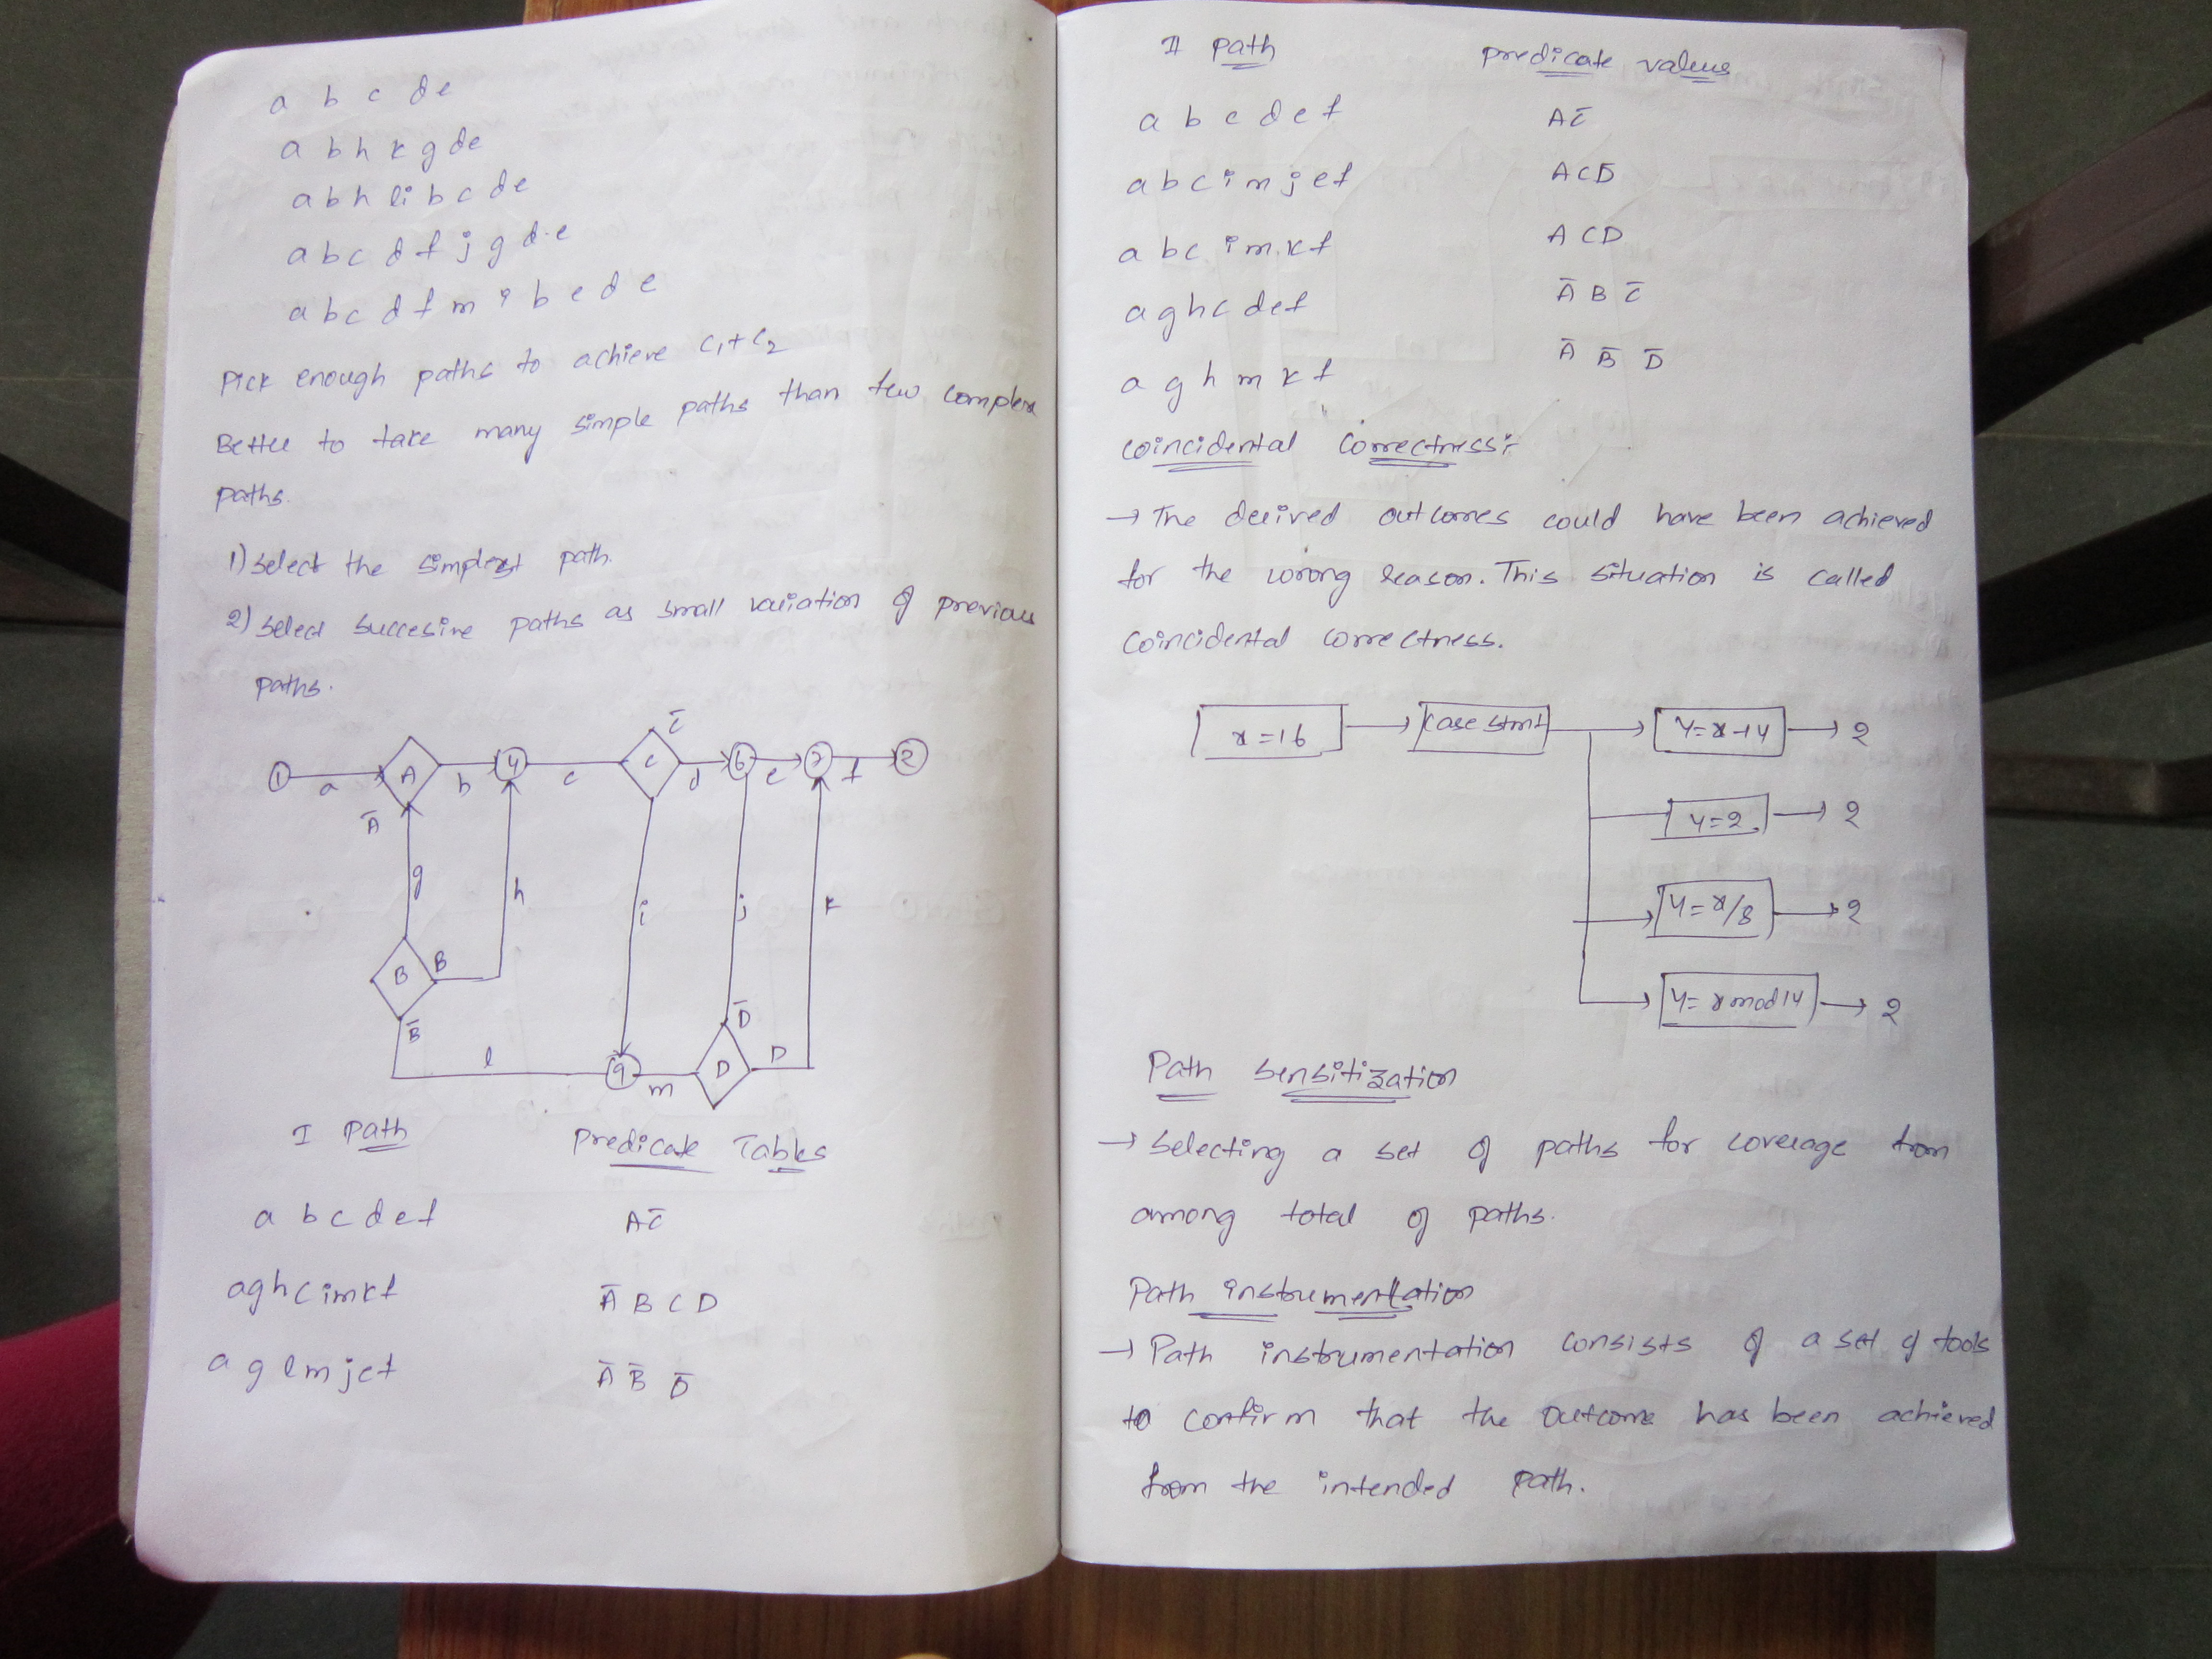 a b c d e
a b h k g d e
a b h l i b c d e
a b c d f j g d e
a b c d f m i b e d e
Pick enough paths to achieve C1+C2
Better to take many simple paths than few complex
paths.
1) Select the simplest path.
2) Select succesive paths as small variation of previous
paths.
1 a A b 4 c C d 6 e 3 f 2
Ā g B B h
B̄ l 9 m D D̄ j D k
C̄ i
I Path Predicate Tables
a b c d e f AC̄
a g h c i m k f Ā B C D
a g l m j e f Ā B̄ D̄
II Path Predicate values
a b c d e f AC̄
a b c i m j e f A C D̄
a b c i m k f A C D
a g h c d e f Ā B C̄
a g h m k f Ā B̄ D̄
Coincidental Correctness:-
→ The desired outcomes could have been achieved
for the wrong reason. This situation is called
Coincidental correctness.
x=16 → Case stmt → Y=x-14 → 2
Y=2 → 2
Y=x/8 → 2
Y=x mod 14 → 2
Path Sensitization
→ Selecting a set of paths for coverage from
among total of paths.
Path instrumentation
→ Path instrumentation consists of a set of tools
to confirm that the outcome has been achieved
from the intended path.